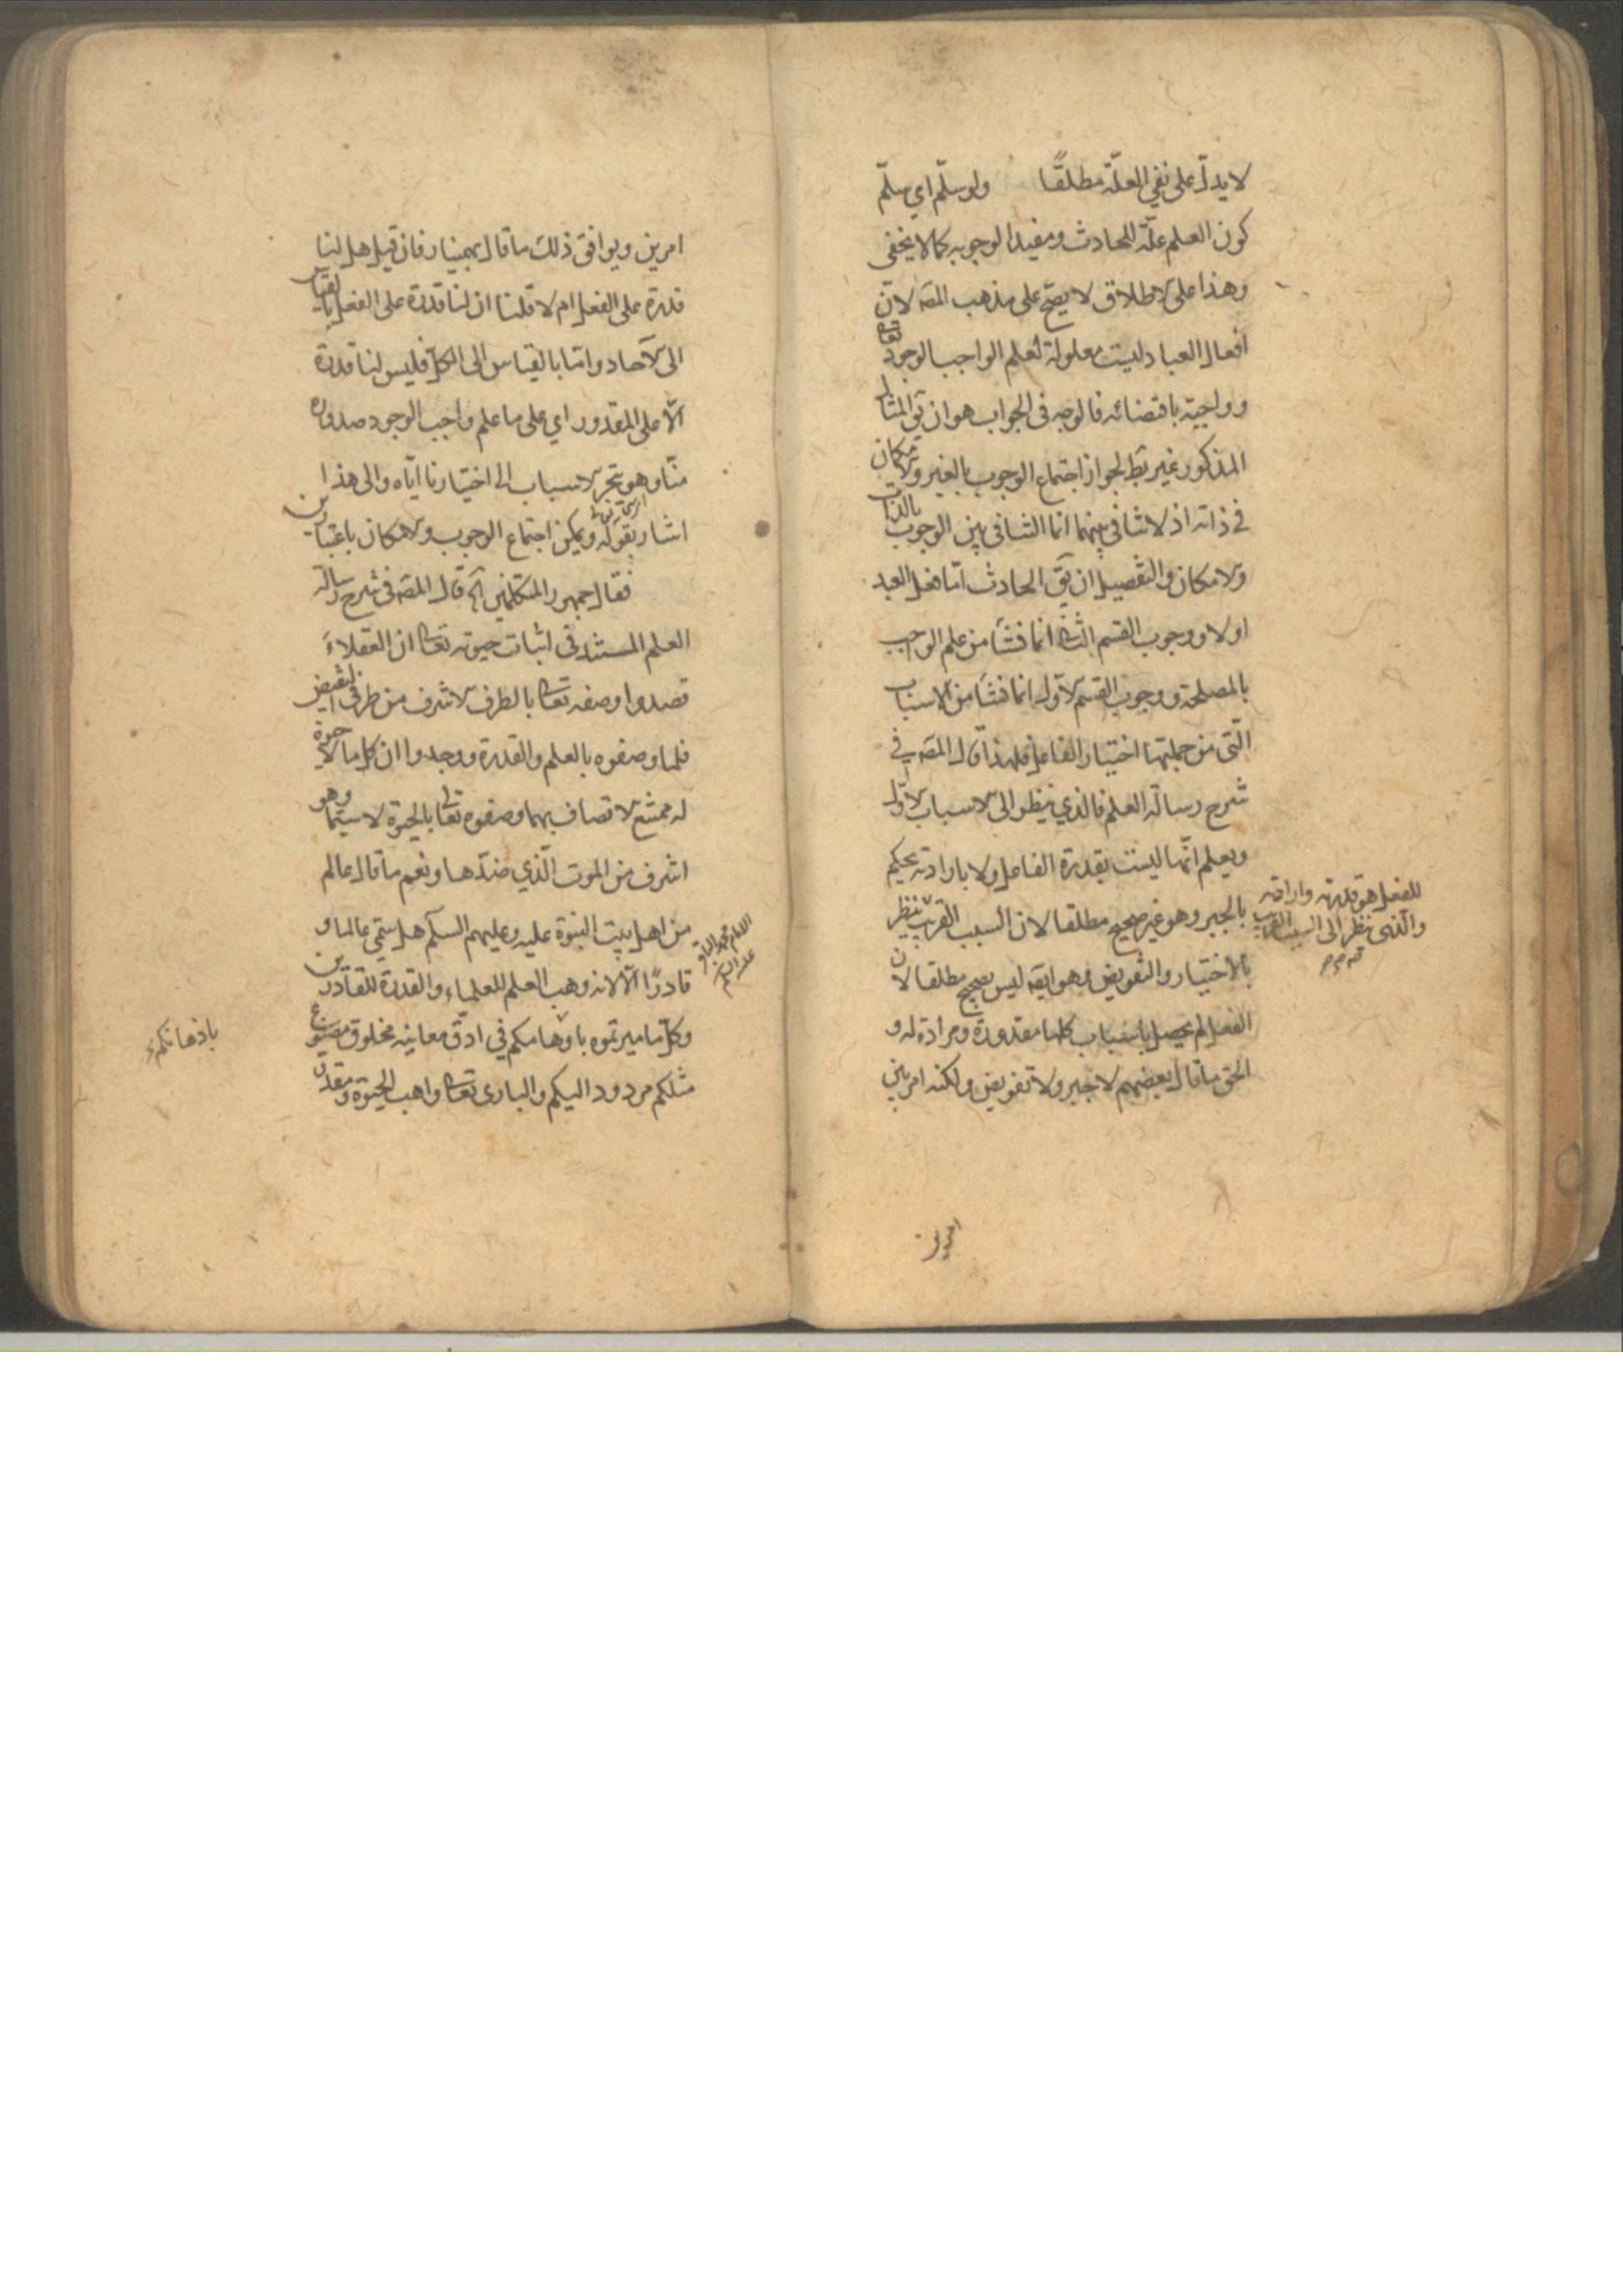 لا يدلّ على نفي العلّة مطلقًا ولو سلّم اي سلّم
كون العلم علّة للحادث ومفيدا لوجوبه كما لا يخفى
وهذا على الاطلاق لا يصحّ على مذهب المصّ لانّ
افعال العباد ليست معلولة لعلم الواجب الوجود تعا
وواجبة باقتضائه فالوجه فى الجواب هو ان يقّ المثال
المذكور غير بطّ لجواز اجتماع الوجوب بالغير والامكان
في ذاته اذ لا تنافي بينهما انما التنافي بين الوجوب بالذات
والامكان والتفصيل ان يقّ الحادث امّا فعل العبد
اولا ووجوب القسم الثا انما نشأ من علم الواجب
بالمصلحة ووجوب القسم الاول انما نشأ من الاسباب
الّتى من جملتها اختيار الفاعل فلهذا قال المصّ في
شرح رسالة العلم فالذي ينظر الى الاسباب الاول
ويعلم انّها ليست بقدرة الفاعل ولا بارادته يحكم
بالجبر وهو غير صحيح مطلقا لان السبب القريب ينظر
للفعل هو قدرته وارادته
والّذى ينظر الى السبب القريب
بالاختيار والتفويض وهو ايضّ ليس بصحيح مطلقا لان
الفعل لم يحصل باسباب كلها مقدورة ومرادة له و
الحق ما قال بعضهم لا جبر ولا تفويض ولكنه امر بين
امرين
امرين ويوافق ذلك ما قال بهمنيار فان قيل هل لنا
قدرة على الفعل ام لا قلنا ان لنا قدرة على الفعل بالقياس
الى الآحاد وامّا بالقياس الى الكلّ فليس لنا قدرة
الّا على المقدور اي على ما علم واجب الوجود صدوره
منّا وهو تجرّ الاسباب الى اختيارنا ايّاه والى هذا
اشار بقوله ويمكن اجتماع الوجوب والامكان باعتبارين
فقال جمهور المتكلمين آه قال المصّ فى شرح رسالة
العلم المستند فى اثبات حيوته تعا ان العقلاء
قصدوا وصفه تعا بالطرف الاشرف من طرفي النقيض
فلما وصفوه بالعلم والقدرة ووجدوا ان كل ما لا حيوة
له ممتنع الاتصاف بهما وصفوه تعا بالحيوة لا سيّما وهو
اشرف من الموت الّذي ضدّها ونعم ما قال عالم
من اهل بيت النبوة عليه وعليهم السلم هل سمّي عالما و
الامام محمد الباقر
عليه السلم
قادرًا الّا لانه وهب العلم للعلماء والقدرة للقادرين
وكلّ ما ميزتموه باوهامكم في ادقّ معانيه مخلوق مصنوع
باذهانكم
مثلكم مردود اليكم والبارى تعا واهب الحيوة ومقدر